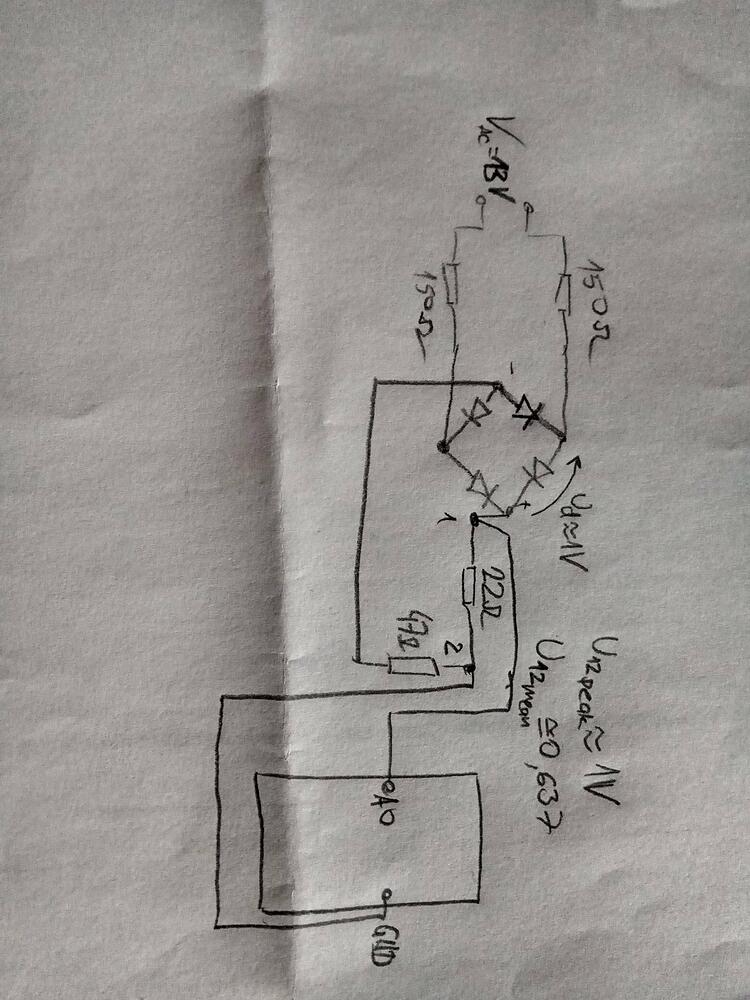 V_AC = 13V
150Ω
150Ω
-
+
Ud≈1V
1
22Ω
2
47Ω
U12peak ≈ 1V
U12mean ≅ 0,637
A0
GND